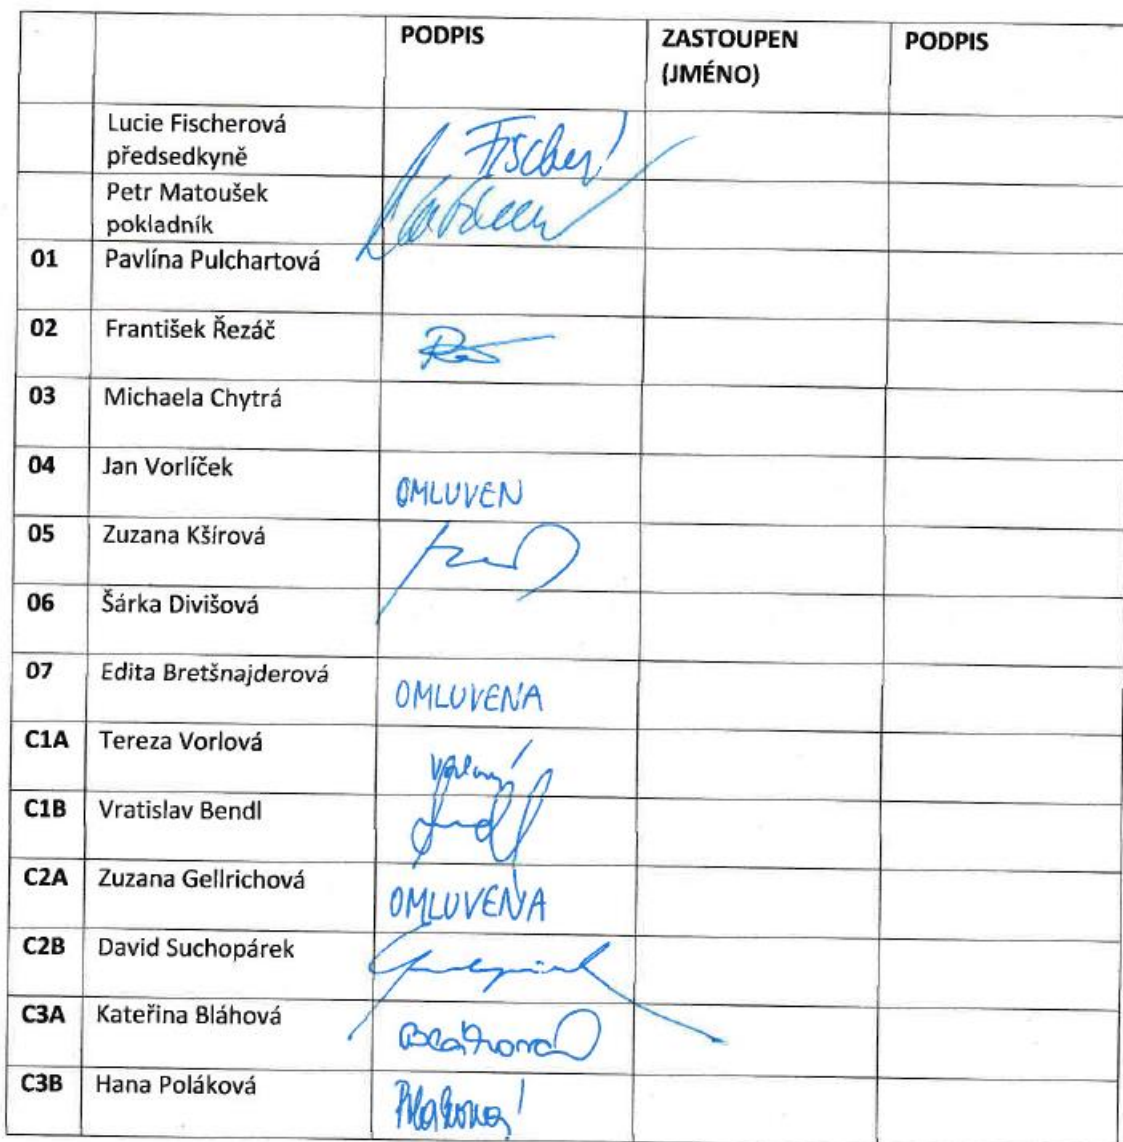 PODPIS ZASTOUPEN PODPIS
(JMÉNO)
Lucie Fischerová
předsedkyně
Fischer
Petr Matoušek
pokladník
01 Pavlína Pulchartová
02 František Řezáč
03 Michaela Chytrá
04 Jan Vorlíček
OMLUVEN
05 Zuzana Kšírová
06 Šárka Divišová
07 Edita Bretšnajderová
OMLUVENA
C1A Tereza Vorlová
C1B Vratislav Bendl
C2A Zuzana Gellrichová
OMLUVENA
C2B David Suchopárek
C3A Kateřina Bláhová
Bláhová
C3B Hana Poláková